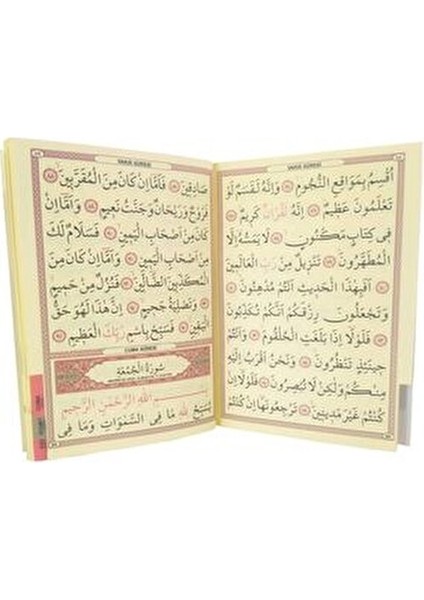 VAKIA SÛRESİ
اُقْسِمُ بِمَوَاقِعِ النُّجُومِ وَاِنَّهُ لَقَسَمٌ لَوْ
تَعْلَمُونَ عَظِيمٌ اِنَّهُ لَقُرْاٰنٌ كَرِيمٌ
فِى كِتَابٍ مَكْنُونٍ لَا يَمَسُّهُ اِلَّا
الْمُطَهَّرُونَ تَنْزِيلٌ مِنْ رَبِّ الْعَالَمِينَ
اَفَبِهٰذَا الْحَدِيثِ اَنْتُمْ مُدْهِنُونَ
وَتَجْعَلُونَ رِزْقَكُمْ اَنَّكُمْ تُكَذِّبُونَ
فَلَوْلَا اِذَا بَلَغَتِ الْحُلْقُومَ وَاَنْتُمْ
حِينَئِذٍ تَنْظُرُونَ وَنَحْنُ اَقْرَبُ اِلَيْهِ
مِنْكُمْ وَلٰكِنْ لَا تُبْصِرُونَ فَلَوْلَا اِنْ
كُنْتُمْ غَيْرَ مَدِينِينَ تَرْجِعُونَهَا اِنْ كُنْتُمْ
VAKIA SÛRESİ
صَادِقِينَ فَاَمَّا اِنْ كَانَ مِنَ الْمُقَرَّبِينَ
فَرَوْحٌ وَرَيْحَانٌ وَجَنَّتُ نَعِيمٍ وَاَمَّا اِنْ
كَانَ مِنْ اَصْحَابِ الْيَمِينِ فَسَلَامٌ لَكَ
مِنْ اَصْحَابِ الْيَمِينِ وَاَمَّا اِنْ كَانَ مِنَ
الْمُكَذِّبِينَ الضَّالِّينَ فَنُزُلٌ مِنْ حَمِيمٍ
وَتَصْلِيَةُ جَحِيمٍ اِنَّ هٰذَا لَهُوَ حَقُّ
الْيَقِينِ فَسَبِّحْ بِاسْمِ رَبِّكَ الْعَظِيمِ
CUMA SÛRESİ
سُورَةُ الْجُمُعَةِ
بِسْمِ اللّٰهِ الرَّحْمٰنِ الرَّحِيمِ
يُسَبِّحُ لِلّٰهِ مَا فِى السَّمٰوَاتِ وَمَا فِى